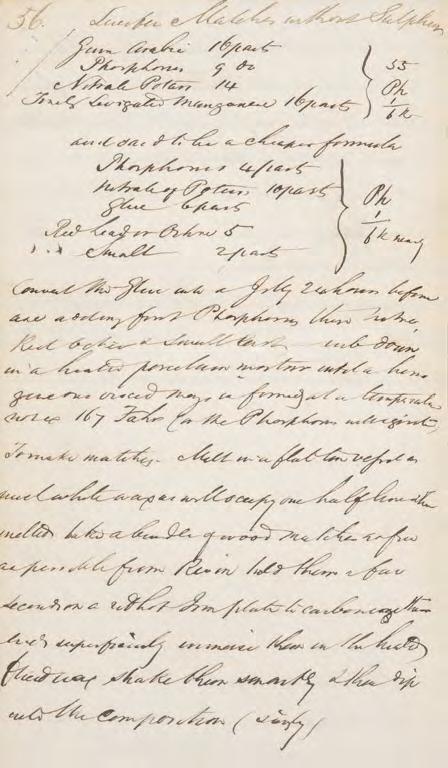 56. Lucifer Matches without Sulphur
Gum Arabic 16 parts
Phosphorus 9 do
Nitrate Potass 14
Finely Levigated Manganese 16 parts
55
Ph
1/6 th
and said to be a cheaper formula
Phosphorus 4 parts
Nitrate of Potass 10 parts
Glue 6 parts
Red Lead or Ochre 5
Smalt 2 parts
Ph
1/6 th nearly
Convert the Glue into a Jelly 24 hours before
use adding first Phosphorus then Nitre,
Red Ochre & Smalt last rub down
in a heated porcelain mortar until a homo
geneous mass is formed at a temperature
not ex 167 Fahr (or the Phosphorus will ignite)
To make matches. Melt in a flat tin vessel as
much white wax as will occupy one half line when
melted take a bundle of wood matches as free
as possible from Resin hold them a few
seconds on a red hot Iron plate to carbonize their
ends superficially immerse them in the heated
fluid wax shake them smartly & then dip
into the composition